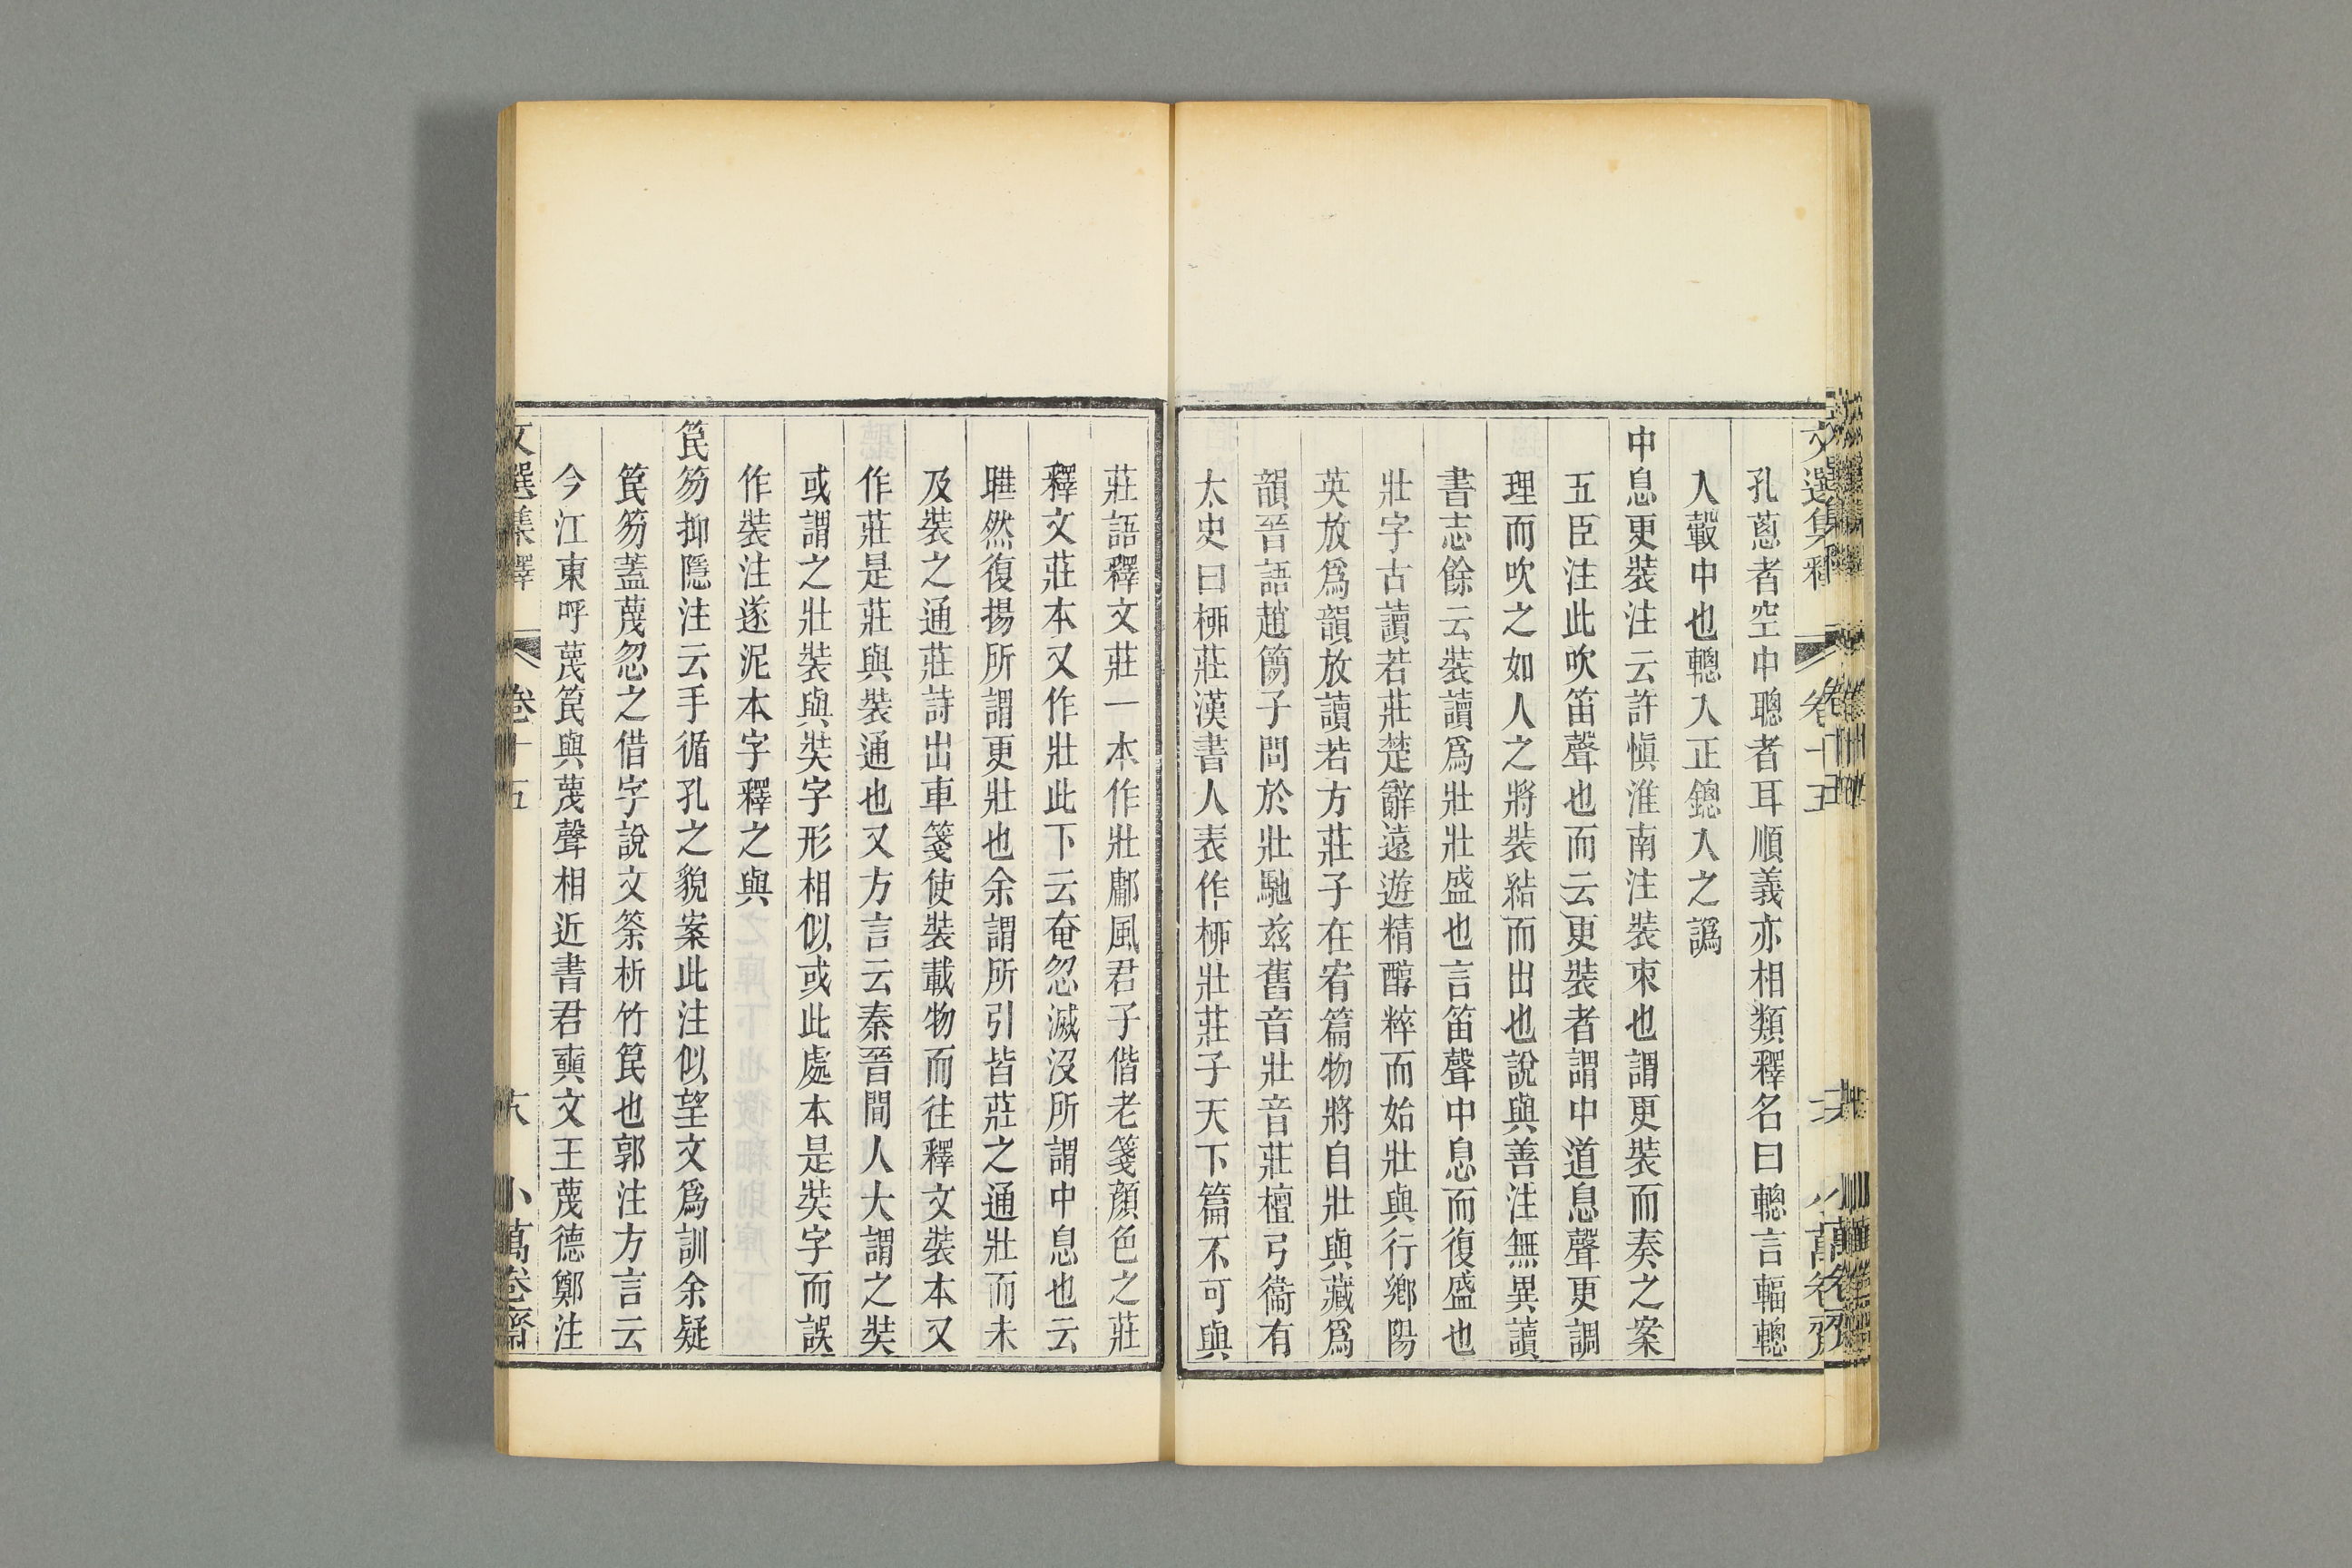 孔蔥者空中聰者耳順義亦相類釋名曰轗言輻轗
入轂中也轗入正鏓入之譌
中息更裝注云許愼淮南注裝束也謂更裝而奏之案
五臣注此吹笛聲也而云更裝者謂中道息聲更調
理而吹之如人之將裝結而出也說與善注無異讀
書志餘云裝讀爲壯壯盛也言笛聲中息而復盛也
壯字古讀若莊楚辭遠遊精醇粹而始壯與行鄉陽
英放爲韻放讀若方莊子在宥篇物將自壯與藏爲
韻晉語趙簡子問於壯馳兹舊音壯音莊檀弓衞有
太史曰桺莊漢書人表作桺壯莊子天下篇不可與
莊語釋文莊一本作壯鄘風君子偕老箋顔色之莊
釋文莊本又作壯此下云奄忽滅沒所謂中息也云
曄然復揚所謂更壯也余謂所引皆莊之通壯而未
及裝之通莊詩出車箋使裝載物而往釋文裝本又
作莊是莊與裝通也又方言云秦晉間人大謂之奘
或謂之壯裝與奘字形相似或此處本是奘字而誤
作裝注遂泥本字釋之與
笢笏抑隱注云手循孔之貌案此注似望文爲訓余疑
笢笏蓋蔑忽之借字說文筡析竹笢也郭注方言云
今江東呼蔑笢與蔑聲相近書君奭文王蔑德鄭注
文選集釋 卷十五 十六 小萬卷齋